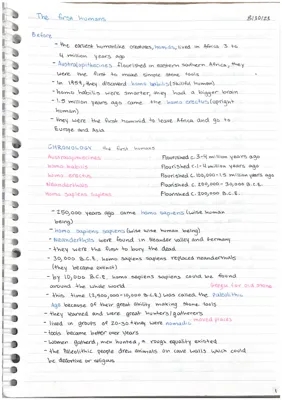 The first humans 8/30/23
Before
- the earliest humanlike creatures, hominids, lived in Africa 3 to
4 million years ago
- Australopithecines flourished in eastern southern Africa, they
were the first to make simple stone tools
- In 1959, they discovered homo habilis (skillful human)
- homo habilis were smarter, they had a bigger brain
- 1.5 million years ago came the homo erectus (upright
human)
- they were the first hominid to leave Africa and go to
Europe and Asia
CHRONOLOGY the first humans
Australopithecines Flourished c. 3-4 million years ago
homo habilis flourished c. 1-4 million years ago
homo erectus Flourished c. 100,000-1.5 million years ago
Neanderthals Flourished c. 200,000- 30,000 B.C.E.
homo sapiens sapiens Flourished c. 200,000 B.C.E.
- 250,000 years ago came homo sapiens (wise human
being)
- homo sapiens sapiens (wise wise human being)
- Neanderthals were found in Neander valley and Germany
- they were the first to bury the dead
- 30,000 B.C.E. homo sapiens sapiens replaced neanderthals
(they became extinct)
- by 10,000 B.C.E. homo sapiens sapiens could be found
around the whole world
- this time (2,500,000-10,000 B.C.E.) was called the Paleolithic
age because of their great ability making stone tools
- they learned and were great hunters/gatherers
moved places
- lived in groups of 20-30 + they were nomadic
- tools became better over years
- women gathered, men hunted, + rough equality existed
- the Paleolithic people drew animals on cave walls which could
be decorative or religious